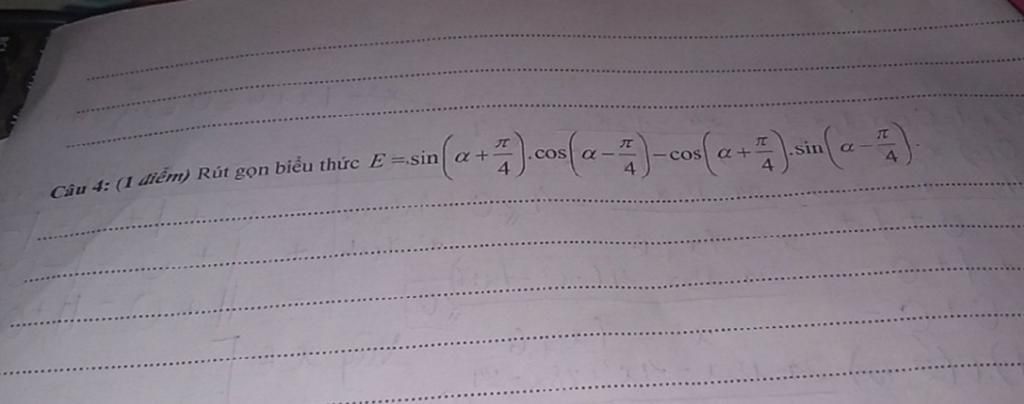 Câu 4: (1 điểm) Rút gọn biểu thức E = sin(α + π/4).cos(α − π/4) − cos(α + π/4).sin(α − π/4).